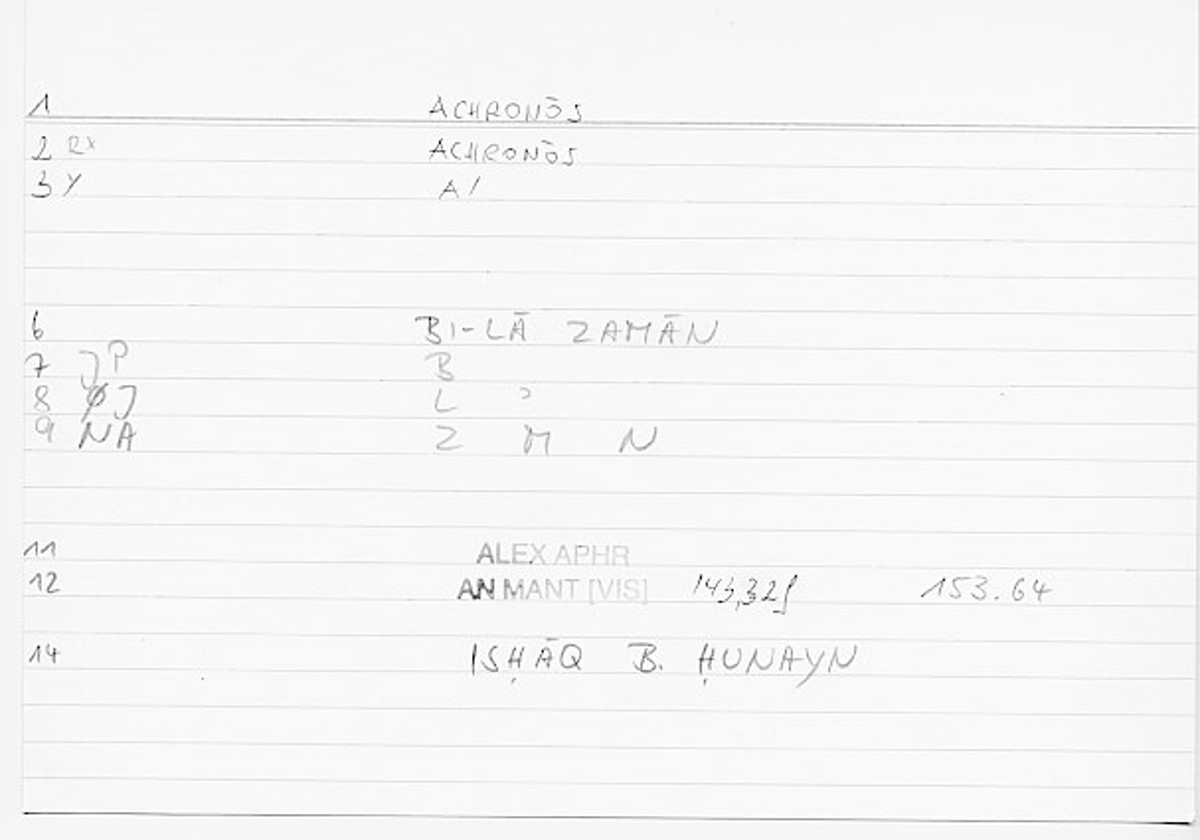 1 ACHRONŌS
2 RX ACHRONŌS
3 Y A/
6 BI-LĀ ZAMĀN
7 JP B
8 ØJ L ʾ
9 NA Z M N
11 ALEX APHR
12 AN MANT [VIS] 143,32f 153.64
14 ISḤĀQ B. ḤUNAYN